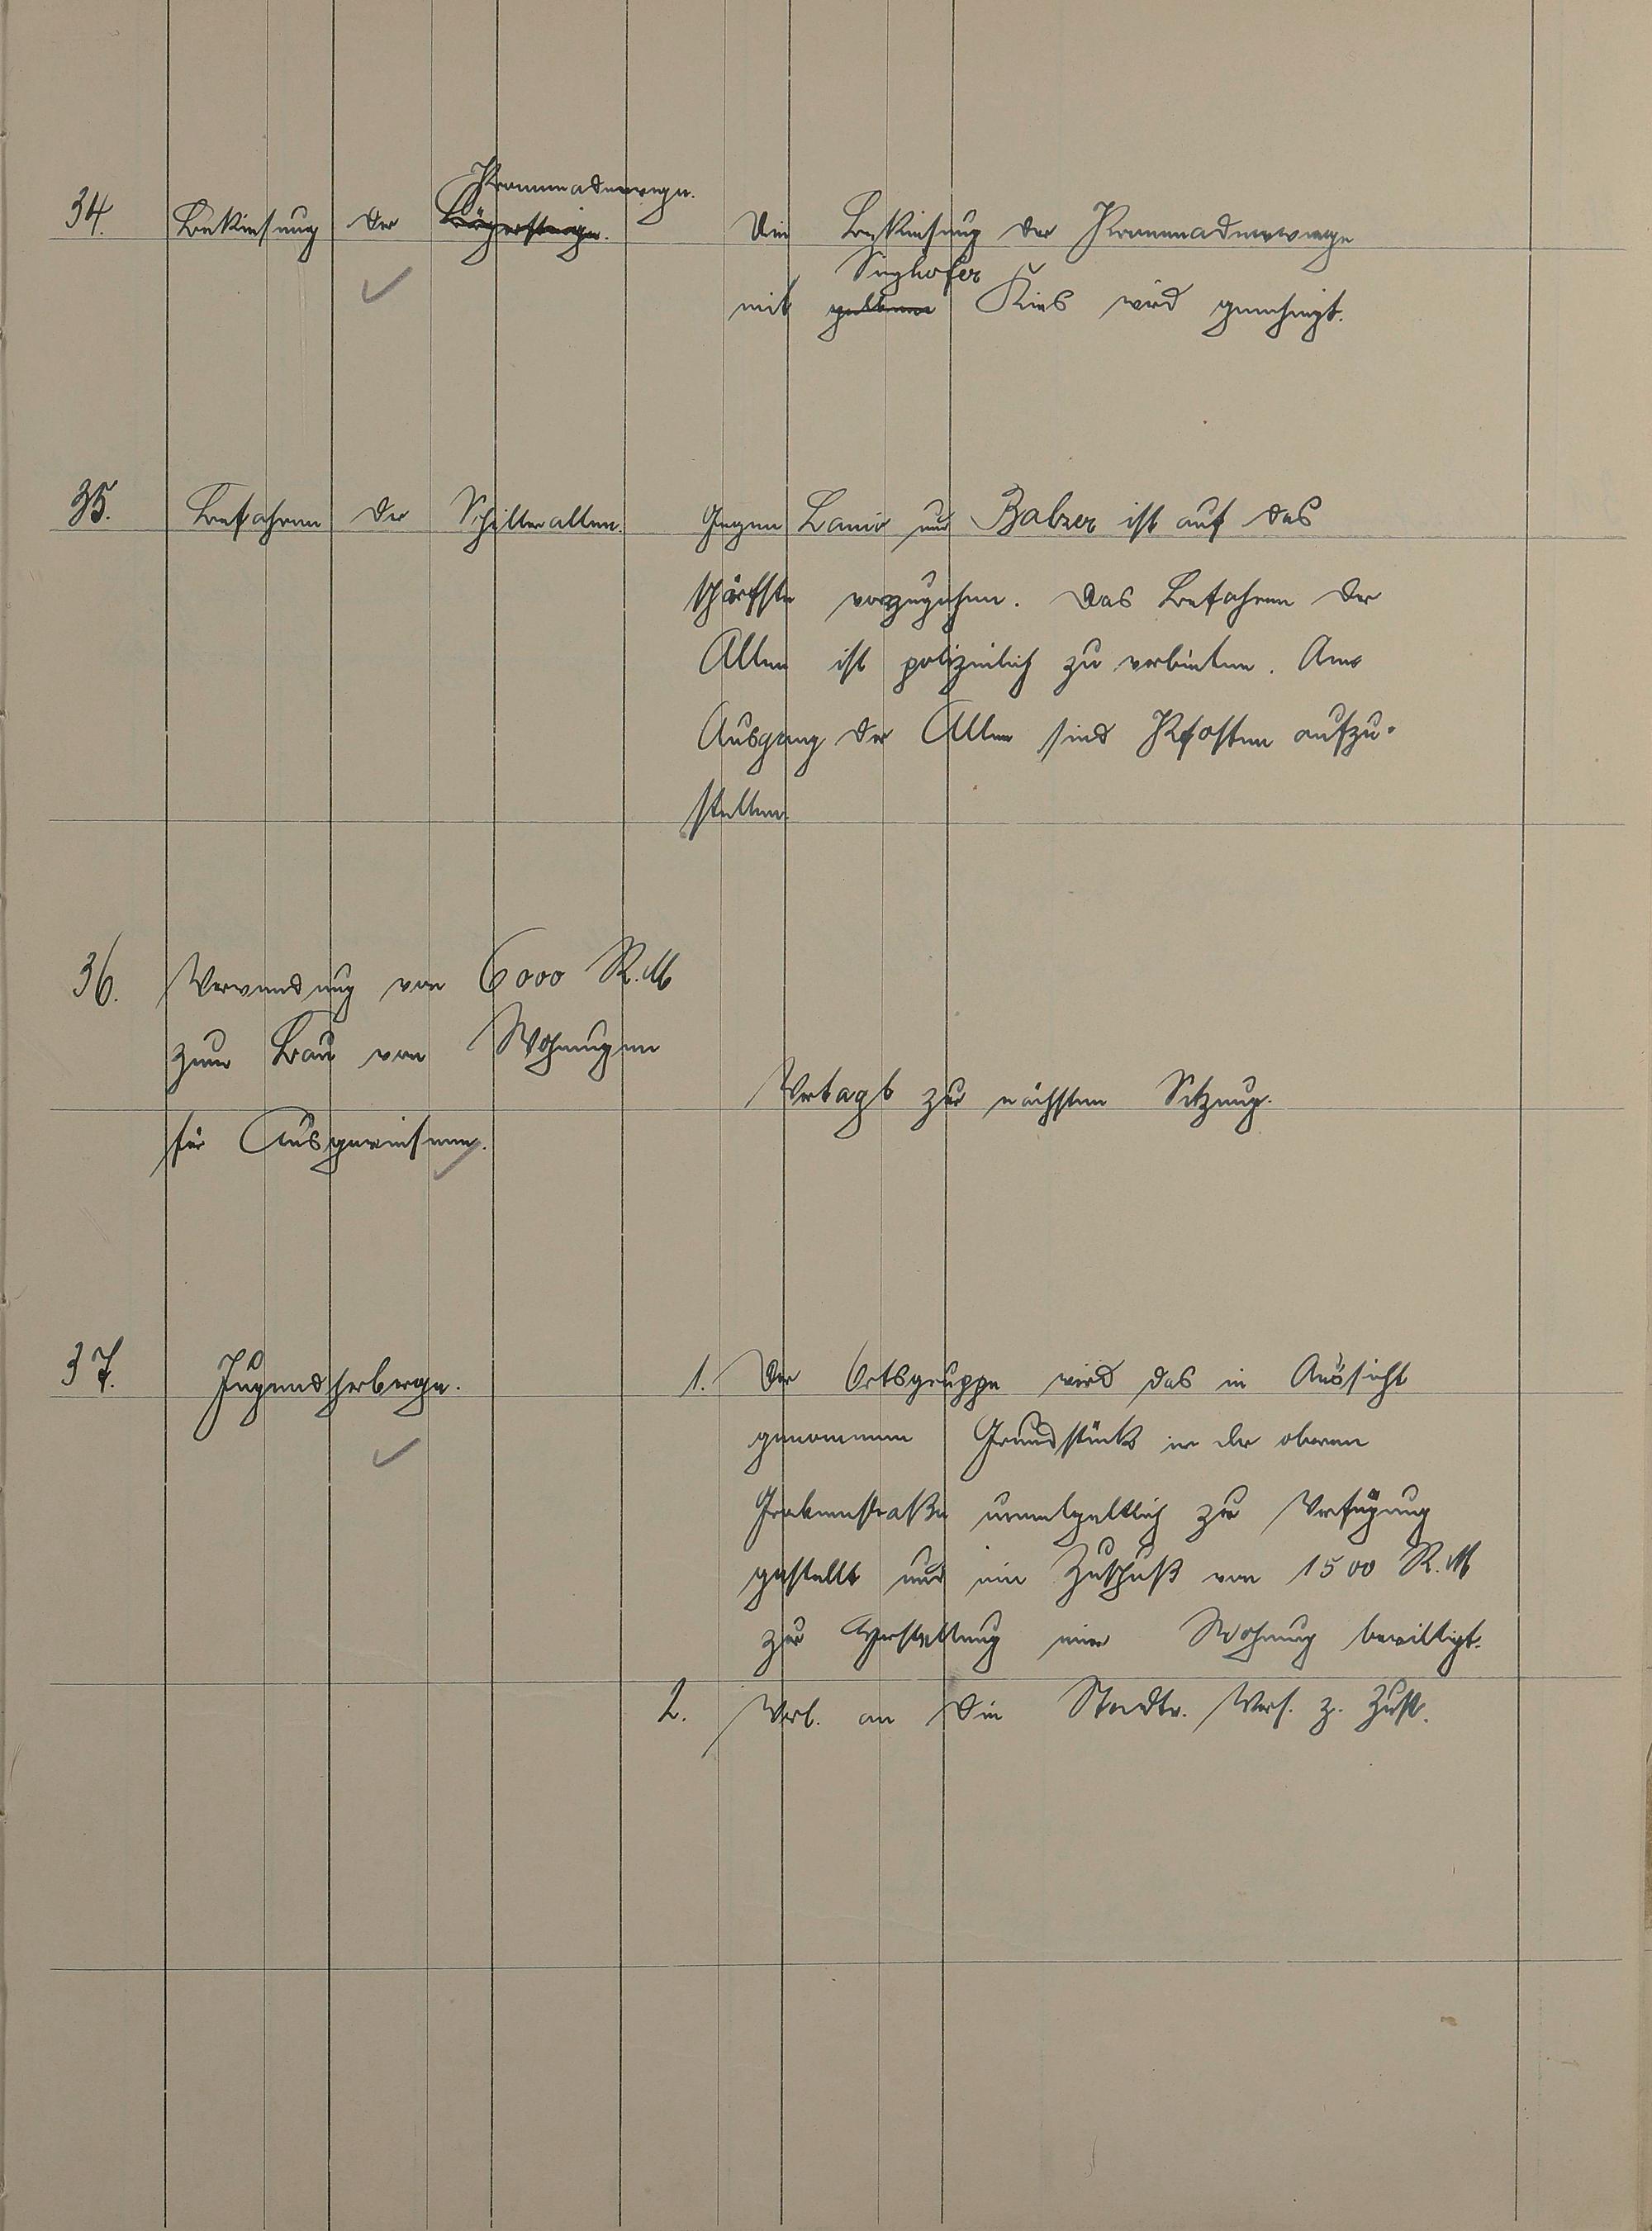 34. Bekiesung der Bürgersteige. Promenadenwege.
Die Bekiesung der Promenadenwege
mit gelbem Seghofer Kies wird genehmigt.
35. Befahren der Schillerallee.
Gegen Lanio und Balzer ist auf das
schärfste vorzugehen. Das Befahren der
Allee ist polizeilich zu verbieten. Am
Ausgang der Allee sind Pfosten aufzu-
stellen.
36. Verwendung von 6000 R.M
zum Bau von Wohnungen
für Ausgewiesene.
Vertagt zur nächsten Sitzung.
37. Jugendherberge.
1. Der Ortsgruppe wird das in Aussicht
genommene Grundstück in der oberen
Grabenstraße unentgeltlich zur Verfügung
gestellt und ein Zuschuß von 1500 R.M
zur Herstellung einer Wohnung bewilligt.
2. Vorl. an die Stadtv. Vers. z. Zust.